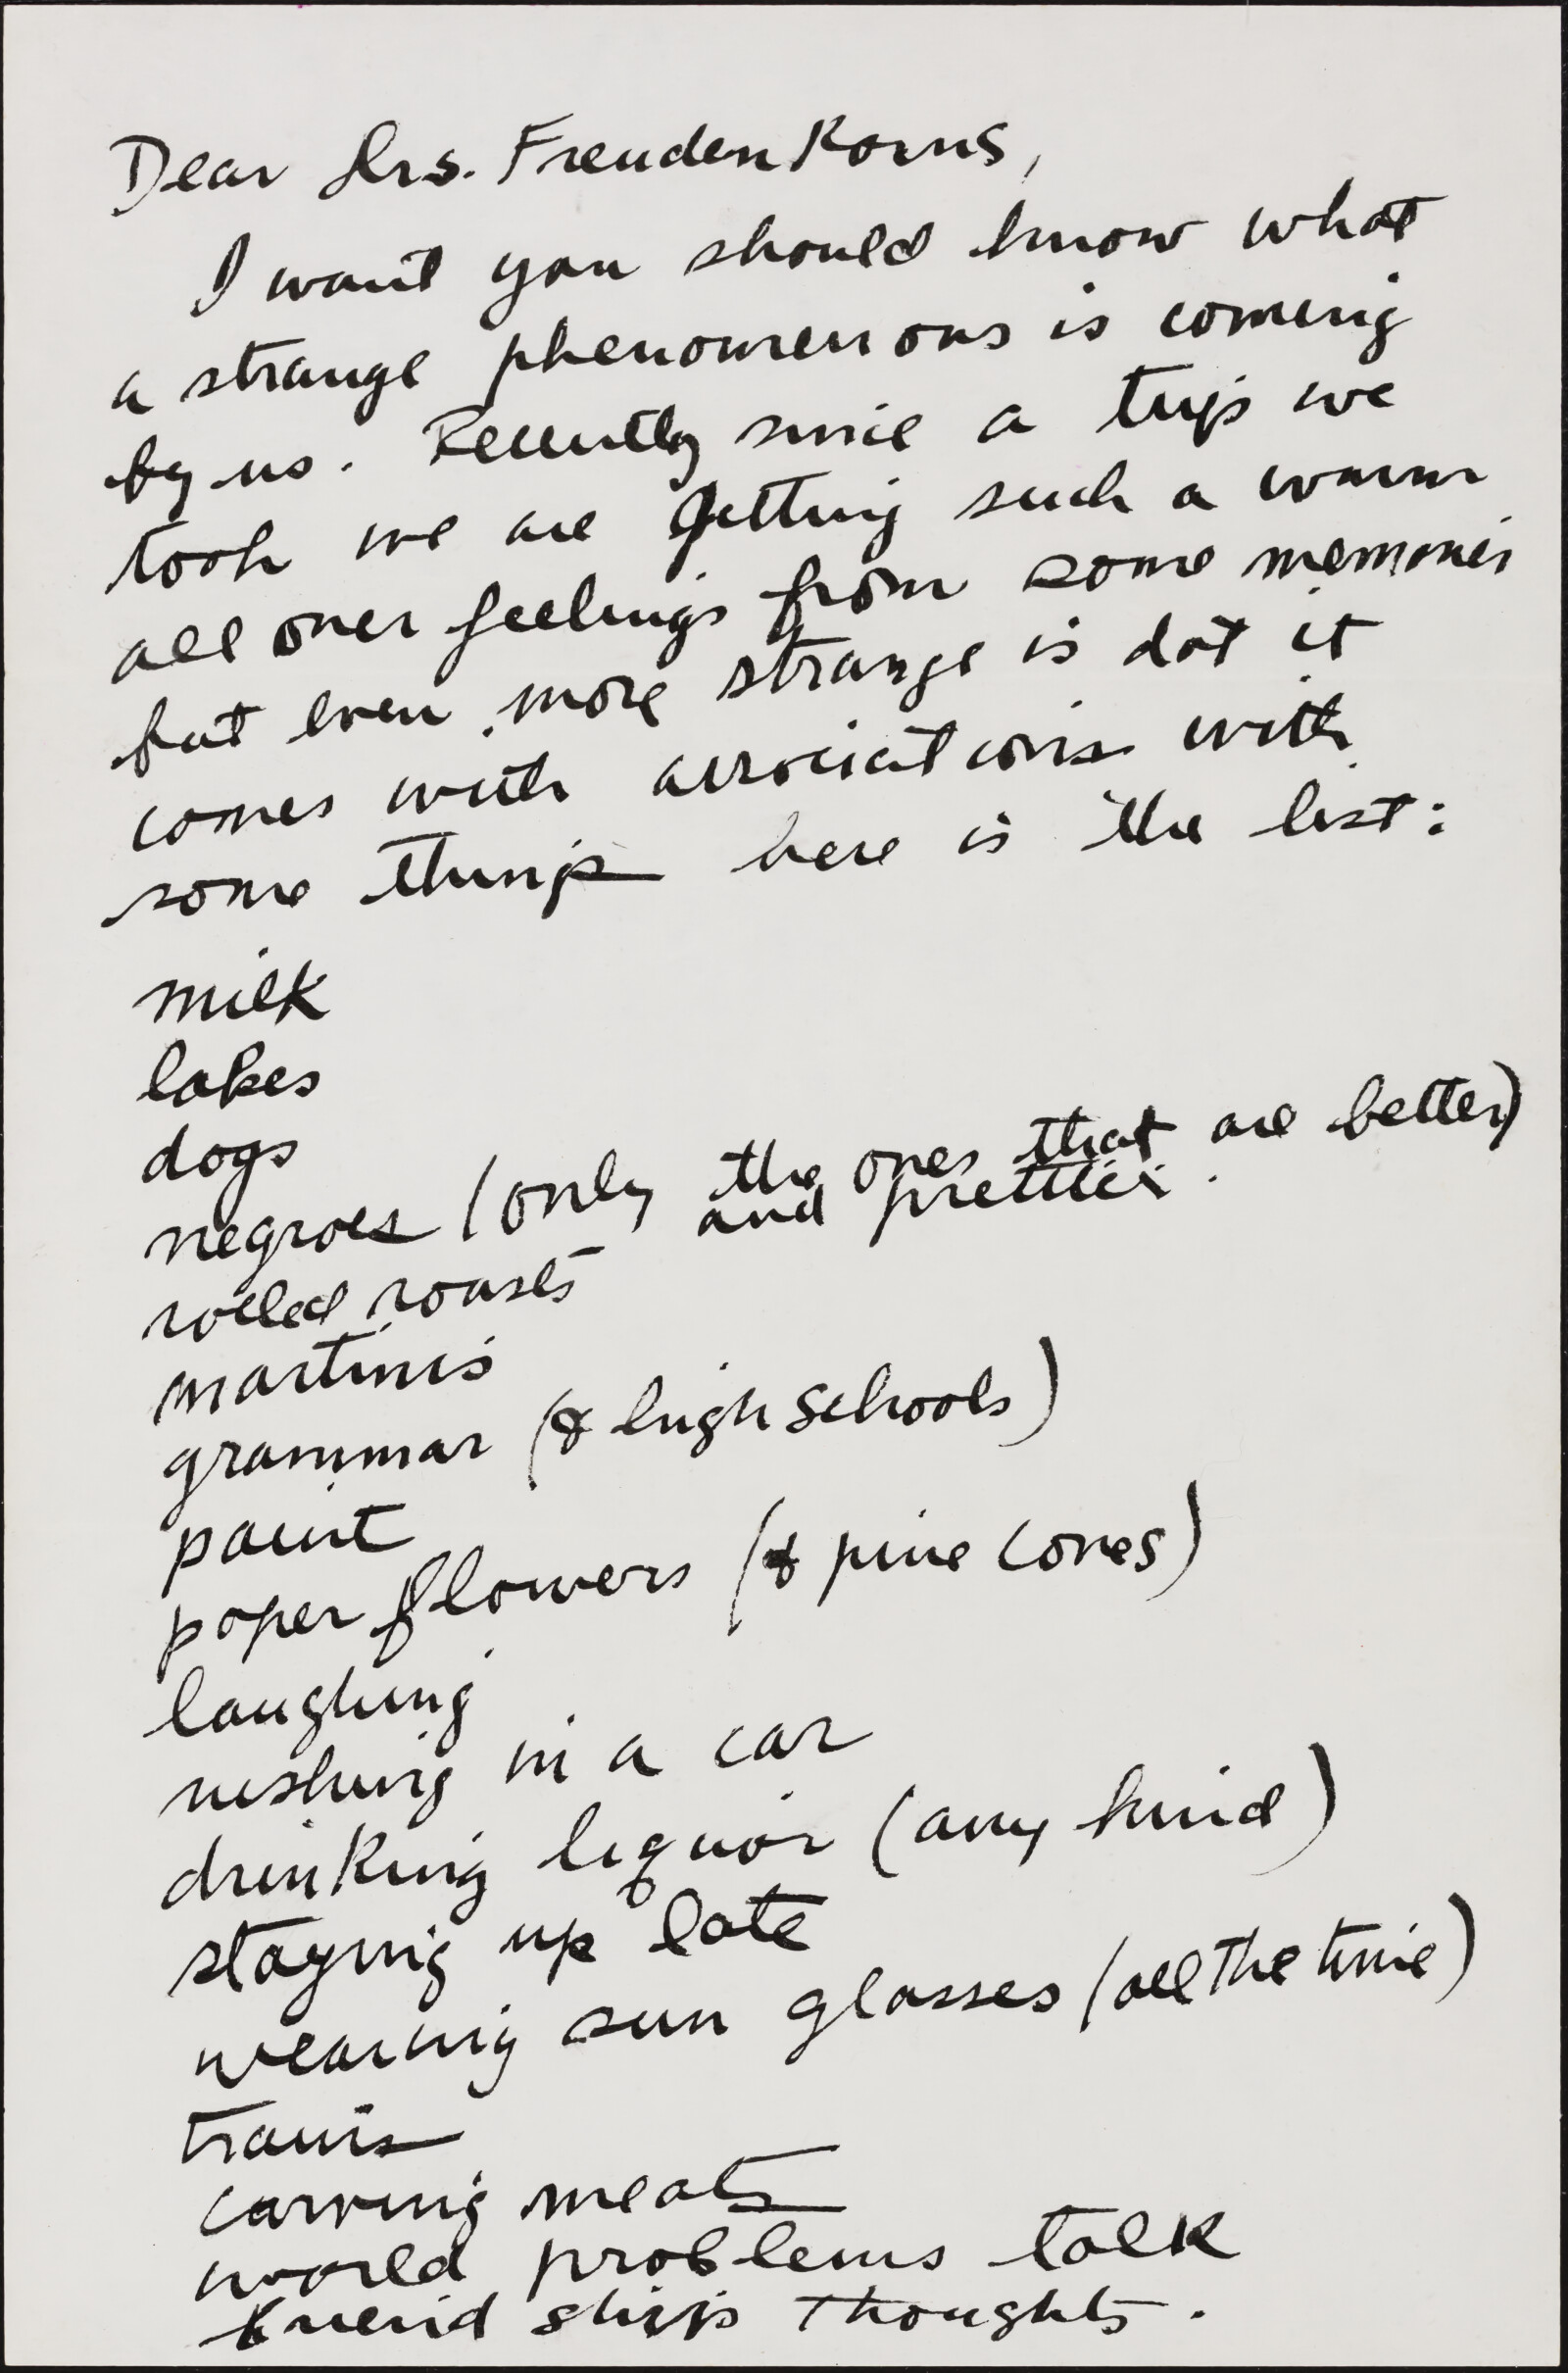 Dear Drs. Freudenkorns,
I want you should know what
a strange phenomenons is coming
by us. Recently since a trip we
took we are getting such a warm
all over feelings from some memories
but even more strange is dat it
comes with associations with
some things here is the list:
milk
lakes
dogs
negroes (only the ones that are better)
and prettier.
rolled roasts
martinis
grammar (& high schools)
paint
paper flowers (& pine cones)
laughing
rushing in a car
drinking liquor (any kind)
staying up late
wearing sun glasses (all the time)
trains
carving meats
world problems talk
friend ships thoughts.